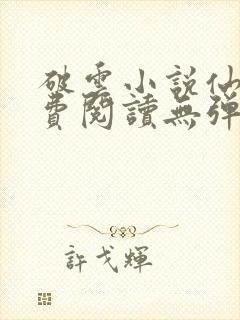 破雲小說仙
費閱讀無彈
許戈輝